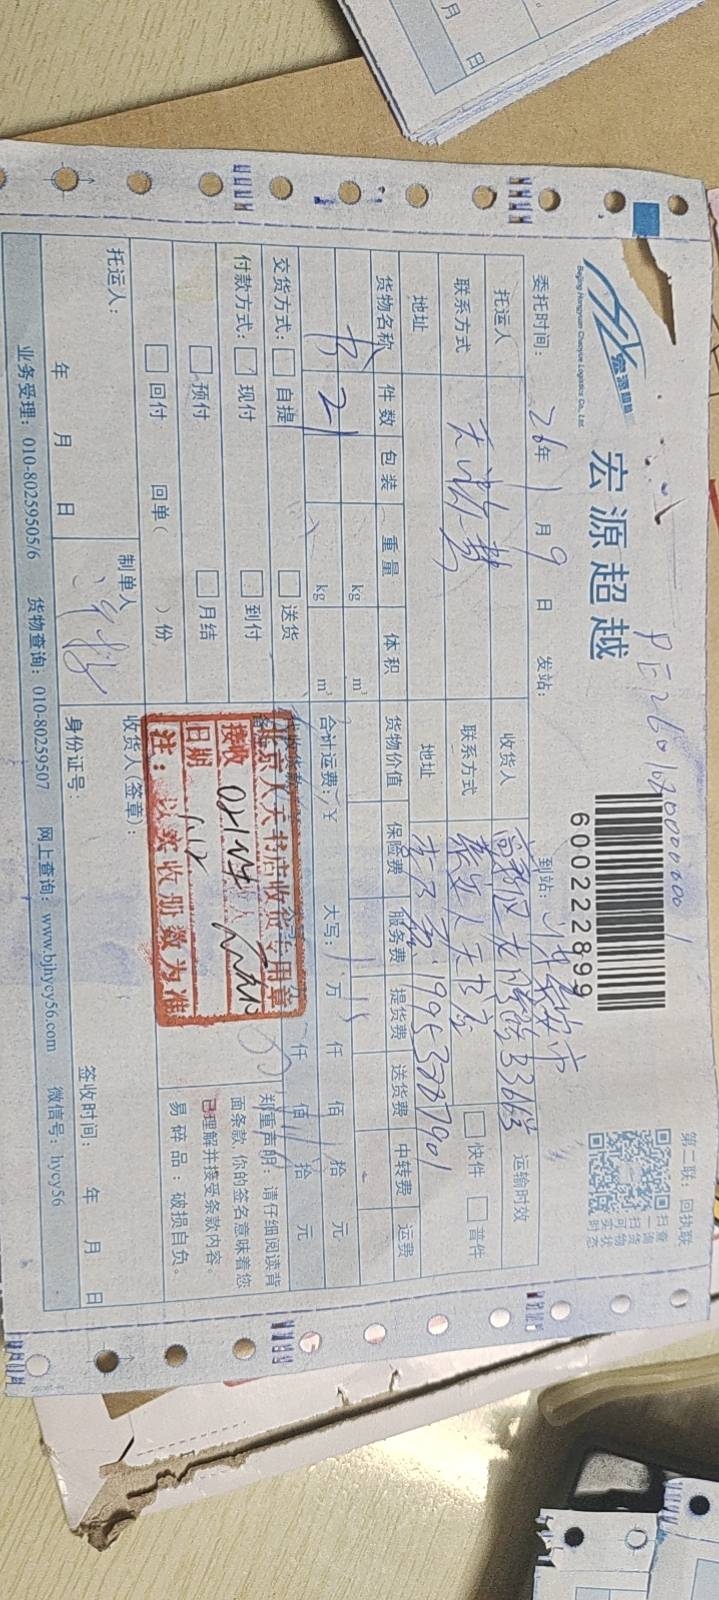 第二联：回执联
宏源超越
Beijing Hongyuan Chaoyue Logistics Co., Ltd.
宏源超越
600222899
扫一扫可实时
查询货物状态
委托时间： 26年 1月 9日 发站： 到站： 泰安市
托运人 收货人 运输时效
联系方式 联系方式 泰安人天书店 快件 普件
地址 地址 19953227901
货物名称 件数 包装 重量 体积 货物价值 保险费 服务费 提货费 送货费 中转费 运费
书 21 kg m³
kg m³ 合计运费：￥ 大写： 万 仟 佰 拾 元
交货方式： 自提 送货 仟 佰 拾 元
付款方式： 现付 到付
预付 月结
回付 回单（ ）份
北京人天书店收货专用章
接收 人
日期 1.12
注：以实收册数为准
郑重声明：请仔细阅读背
面条款，你的签名意味着您
已理解并接受条款内容。
易碎品：破损自负。
托运人： 制单人 收货人(签章)：
年 月 日 身份证号： 签收时间： 年 月 日
业务受理：010-80259505/6 货物查询：010-80259507 网上查询：www.bjhycy56.com 微信号：hycy56